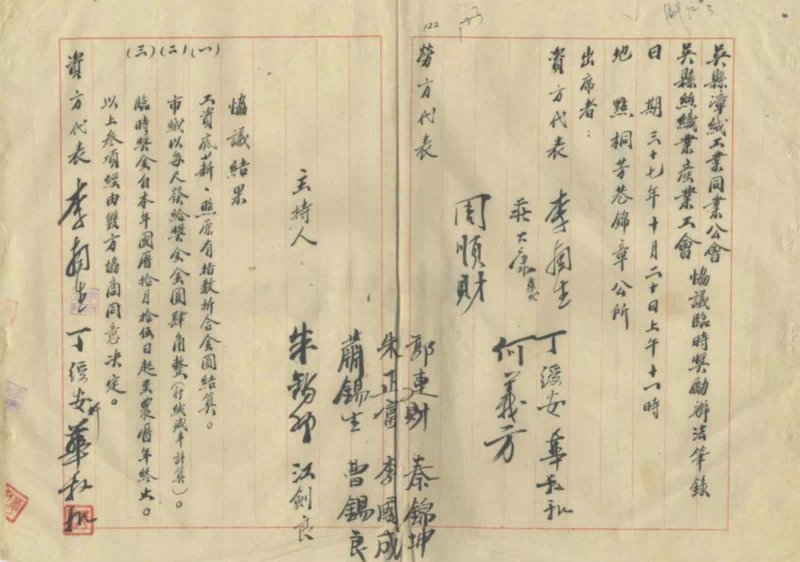 吳縣漳絨工業同業公會
吳縣絲織業產業工會 協議臨時獎勵辦法筆錄
日期 三十七年十月二十日上午十一時
地點 桐芳巷錦章公所
出席者：
資方代表 李南生 丁綬安 華叔和
莊大康 何義方
周順財
122
勞方代表
郭連財 秦錦坤
朱正富 李國成
蕭錫生 曹錫良
主持人 朱錫卿 江劍良
協議結果
(一) 工資底薪、照原有指數折合金圓結算。
(二) 市絨以每尺發給獎金金圓肆角整（行絨減半計算）。
(三) 臨時獎金自本年國曆拾月拾伍日起至農曆年終止。
以上叁項經由雙方協商同意決定。
資方代表 李南生 丁綬安 華叔和